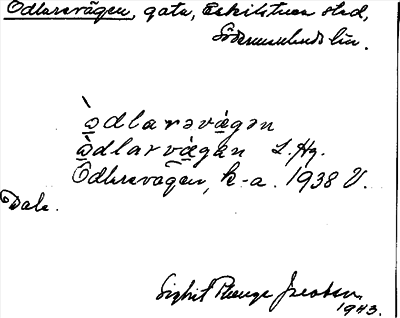 Odlarevägen, gata, Eskilstuna stad,
Södermanlands län.
ə̀dlarəvágən
ə̀dlarvä́gän L. Hg.
Odlarevägen, k-a. 1938 V.
Dale.
Sigbrit Plænge Jacobson
1943.